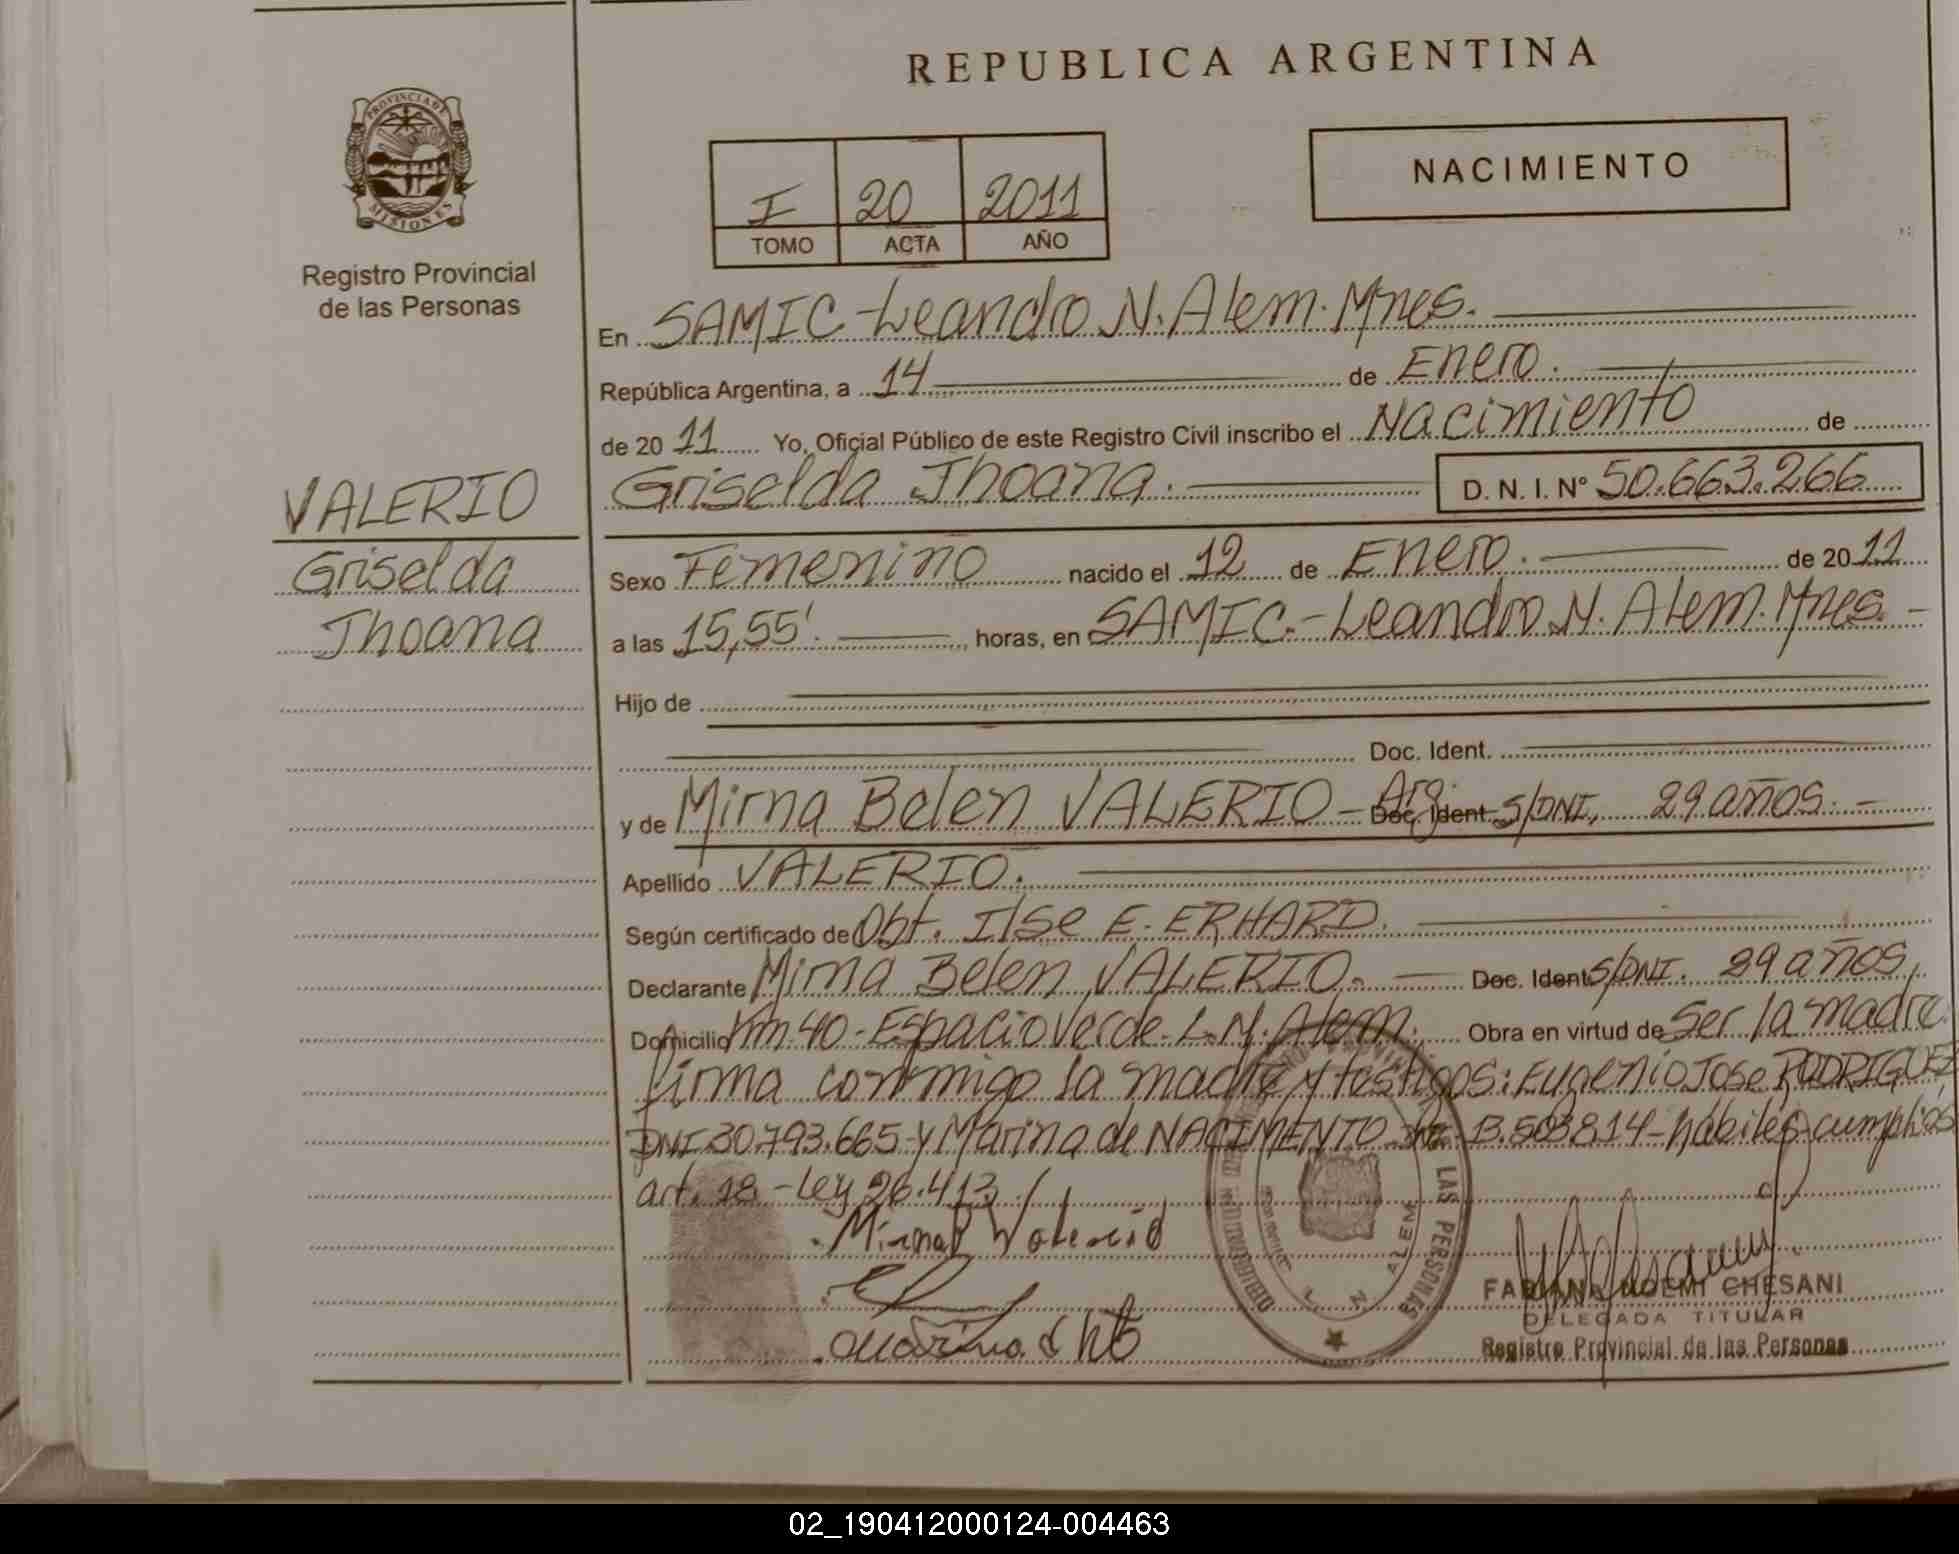 REPUBLICA ARGENTINA
PROVINCIA DE MISIONES
Registro Provincial
de las Personas
I 20 2011
TOMO ACTA AÑO
NACIMIENTO
En SAMIC-Leandro N. Alem. Mnes.
República Argentina, a 14 de Enero.
de 20 11 Yo, Oficial Público de este Registro Civil inscribo el Nacimiento de
VALERIO
Griselda
Jhoana
Griselda Jhoana. D. N. I. Nº 50.663.266
Sexo Femenino nacido el 12 de Enero. de 20 11
a las 15,55'. horas, en SAMIC.-Leandro N. Alem. Mnes.-
Hijo de
Doc. Ident.
y de Mirna Belen VALERIO - Arg. Doc. Ident. S/DNI, 29 años. -
Apellido VALERIO.
Según certificado de Obt. Ilse E. ERHARD.
Declarante Mirna Belen VALERIO. - Doc. Ident. S/DNI. 29 años,
Domicilio Km 40-Espacio Verde-L.N. Alem. Obra en virtud de Ser la madre.
firma conmigo la madre y testigos: Eugenio Jose RODRIGUEZ
DNI 30.793.665-y Marina de NACIMENTO 13.503.814-habiles-cumplios
art. 18-Ley 26.413.
Mirna Valerio
Marina d
LAS PERSONAS
L. N. ALEM
FABIANA NOEMI CHESANI
DELEGADA TITULAR
Registro Provincial de las Personas
02_190412000124-004463